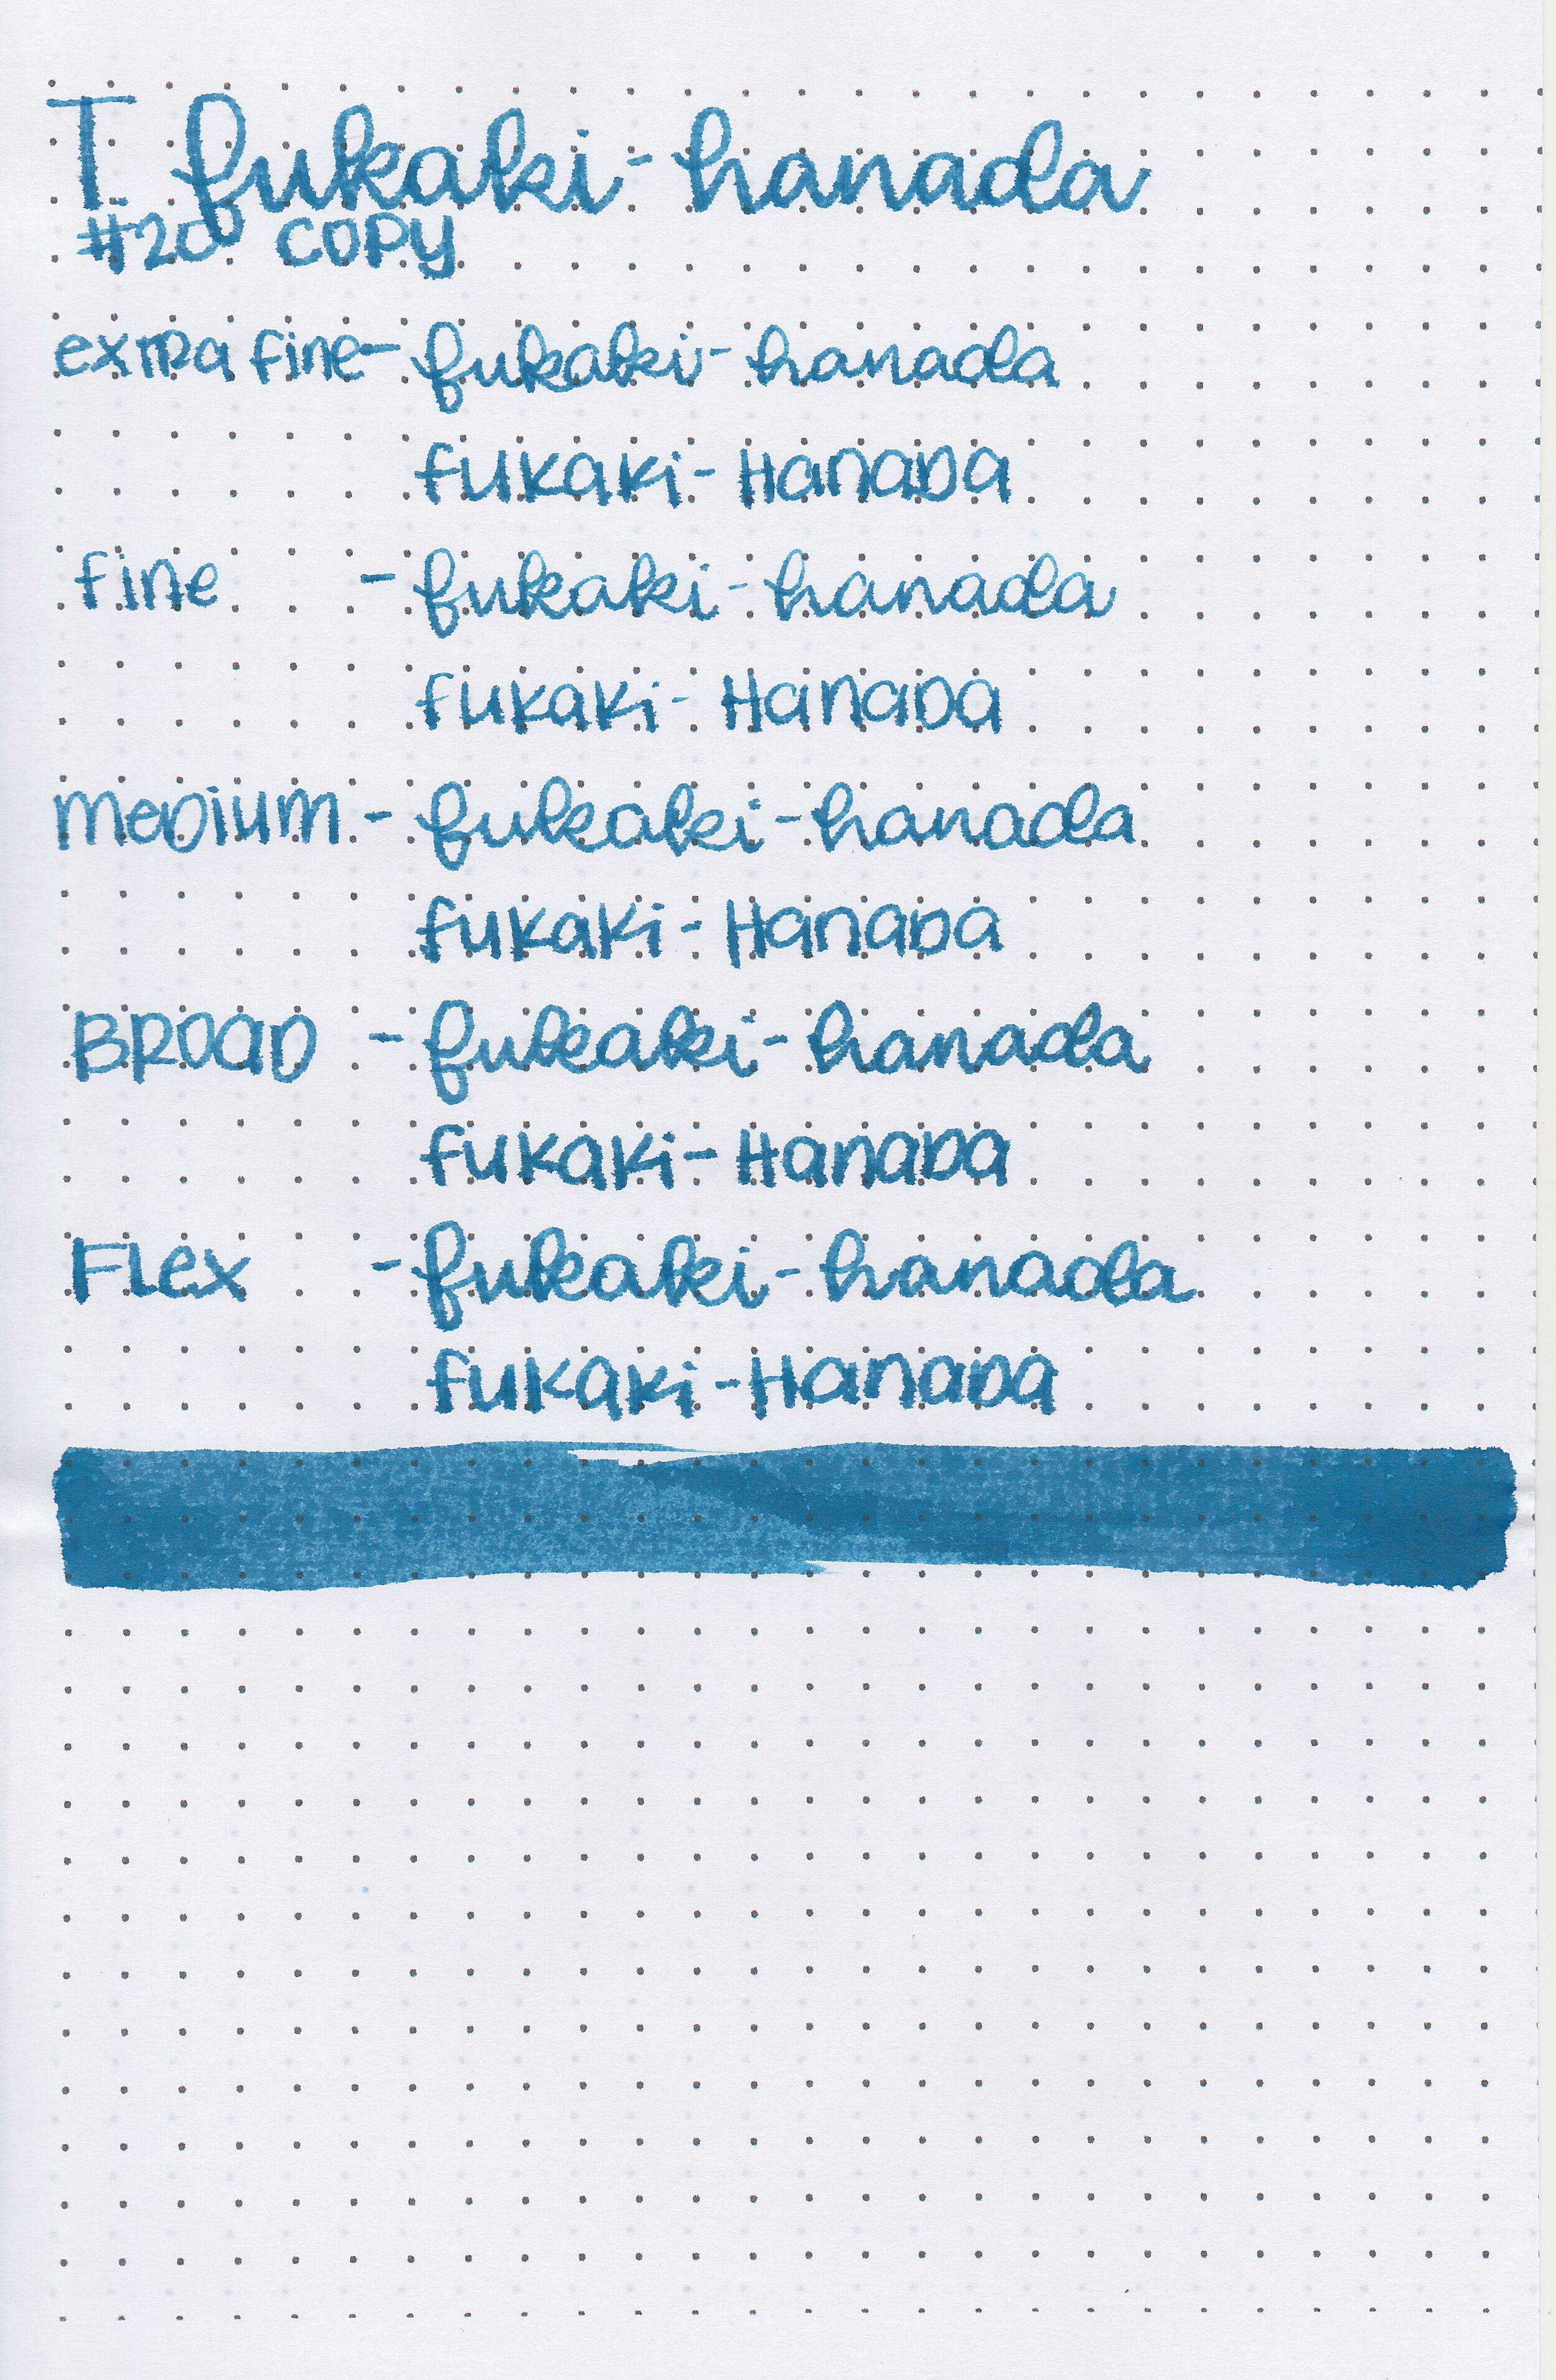 T. fukaki-hanada
#20 COPY
extra fine- fukaki-hanada
fukaki-Hanada
fine - fukaki-hanada
fukaki-Hanada
medium - fukaki-hanada
fukaki-Hanada
BROAD - fukaki-hanada
fukaki-Hanada
Flex - fukaki-hanada
fukaki-Hanada